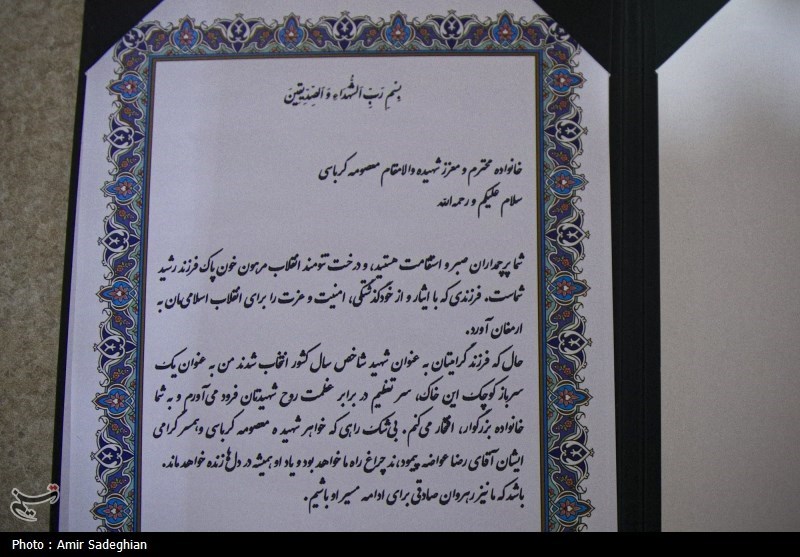 بِسْمِ رَبِّ الشُّهَدَاءِ وَ الصِّدِّيقِينَ
خانواده محترم و معزز شهیده والامقام معصومه کرباسی
سلام علیکم و رحمه‌الله
شما پرچمداران صبر و استقامت هستید، و درخت تنومند انقلاب مرهون خون پاک فرزند رشید
شماست. فرزندی که با ایثار و از خودگذشتگی، امنیت و عزت را برای انقلاب اسلامی‌مان به
ارمغان آورد.
حال که فرزند گرامیتان به عنوان شهید شاخص سال کشور انتخاب شدند من به عنوان یک
سرباز کوچک این خاک، سر تعظیم در برابر عظمت روح شهیدتان فرود می‌آورم و به شما
خانواده بزرگوار، افتخار می‌کنم. بی‌شک راهی که خواهر شهید ه معصومه کرباسی و همسر گرامی
ایشان آقای رضا عواضه پیمود،ند چراغ راه ما خواهد بود و یاد او همیشه در دل‌ها زنده خواهد ماند.
باشد که ما نیز رهروان صادقی برای ادامه مسیر او باشیم.
تسنیم
Photo : Amir Sadeghian